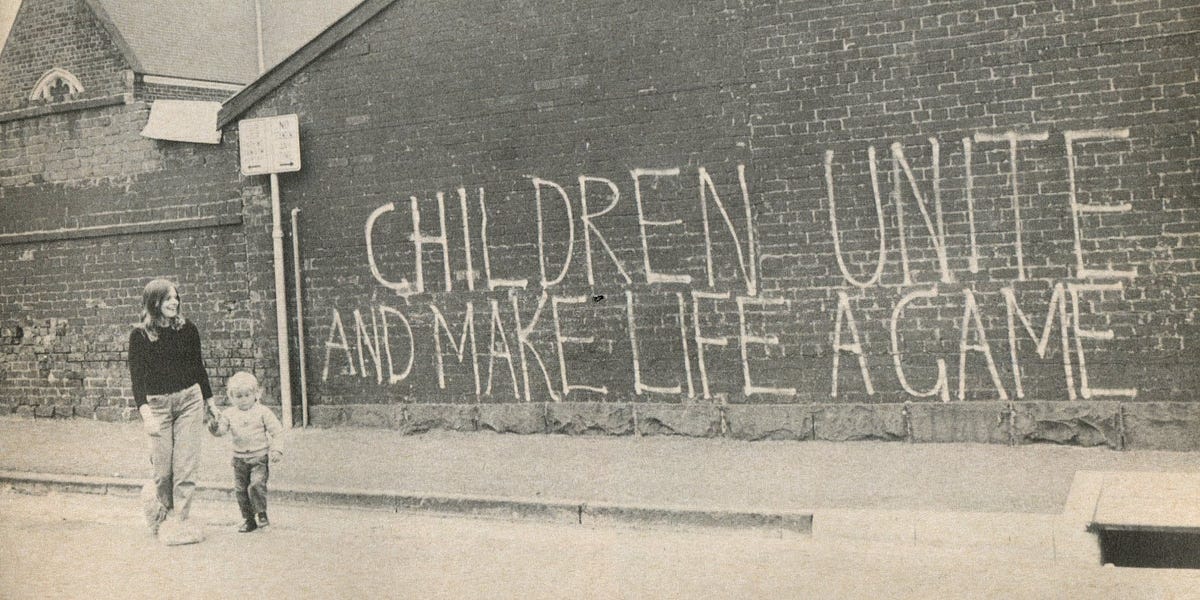 NO
CHILDREN UNITE
AND MAKE LIFE A GAME